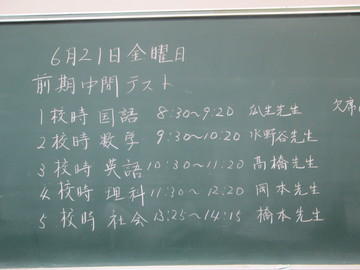 6月21日金曜日
前期中間テスト
1校時 国語 8:30~9:20 瓜生先生 欠席
2校時 数学 9:30~10:20 水野谷先生
3校時 英語 10:30~11:20 高橋先生
4校時 理科 11:30~12:20 岡本先生
5校時 社会 13:25~14:15 橋本先生